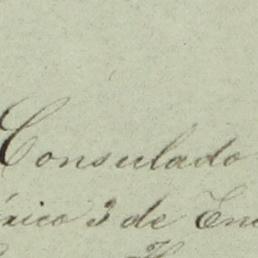 Consulado
éxico 3 de Ene